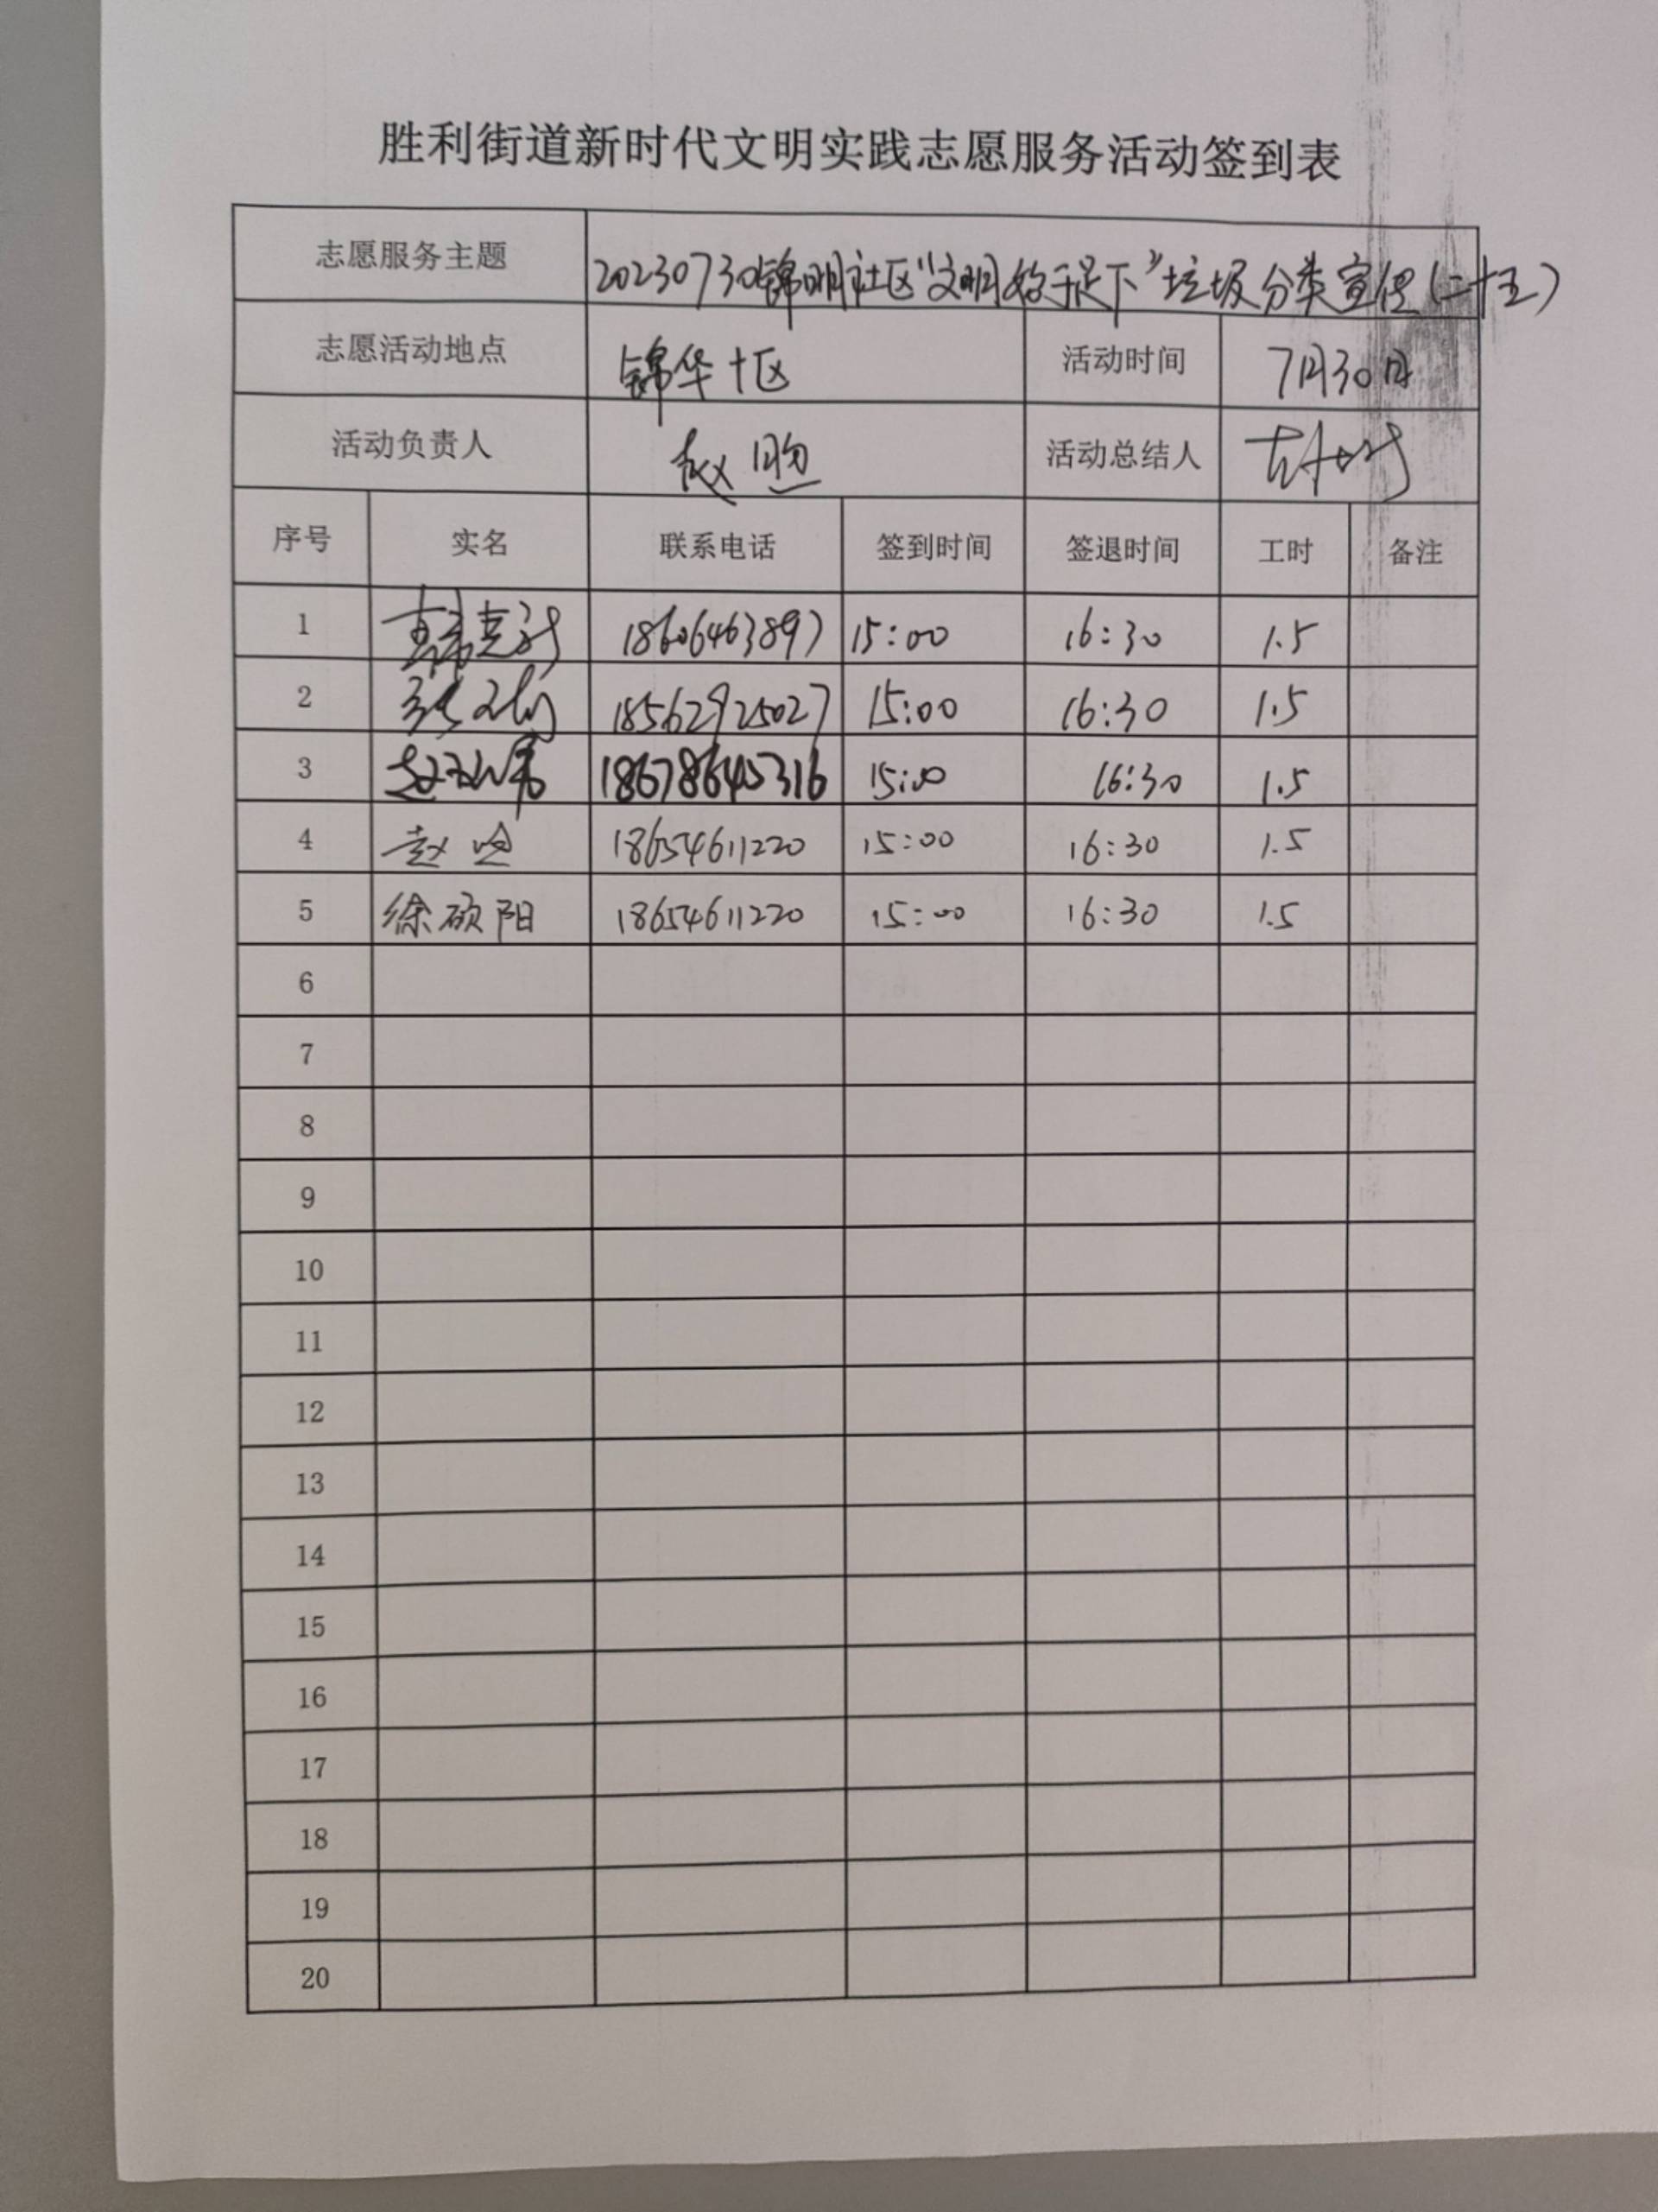 胜利街道新时代文明实践志愿服务活动签到表
志愿服务主题 20230730锦明社区“文明始于足下”垃圾分类宣传(二十五)
志愿活动地点 锦华十区 活动时间 7月30日
活动负责人 赵 活动总结人
序号 实名 联系电话 签到时间 签退时间 工时 备注
1 18606463897 15:00 16:30 1.5
2 18562925027 15:00 16:30 1.5
3 赵 18678645316 15:00 16:30 1.5
4 赵 18654611220 15:00 16:30 1.5
5 徐硕阳 18654611220 15:00 16:30 1.5
6
7
8
9
10
11
12
13
14
15
16
17
18
19
20